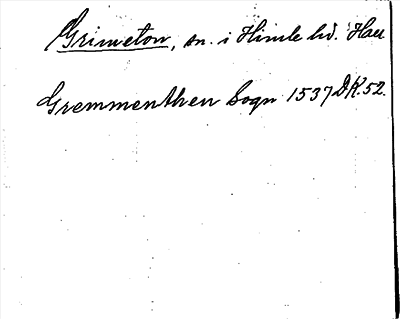 Grimeton, sn. i Himle hd. Hall
Gremmenthen Sogn 1537 DK. 52.